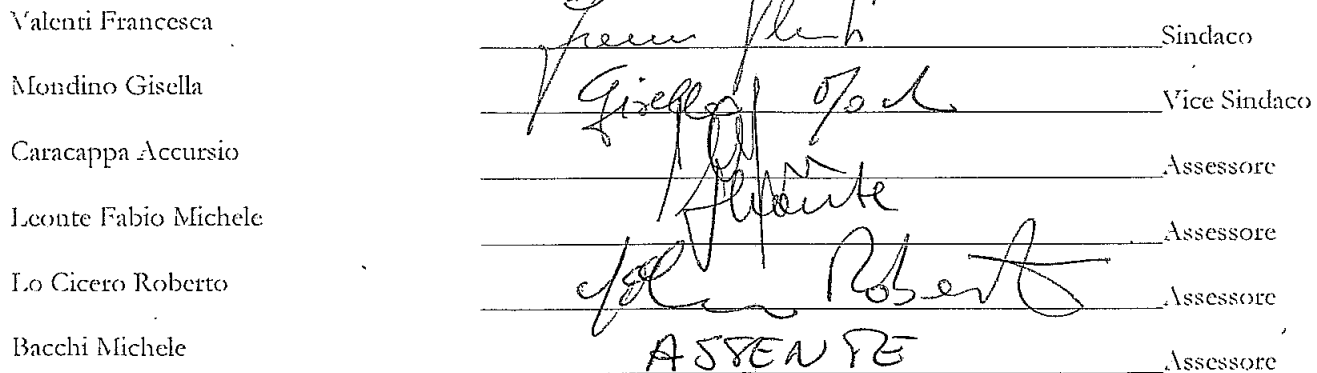 Valenti Francesca Sindaco
Mondino Gisella Gisella Vice Sindaco
Caracappa Accursio Assessore
Leonte Fabio Michele Assessore
Lo Cicero Roberto Roberto Assessore
Bacchi Michele ASSENTE Assessore